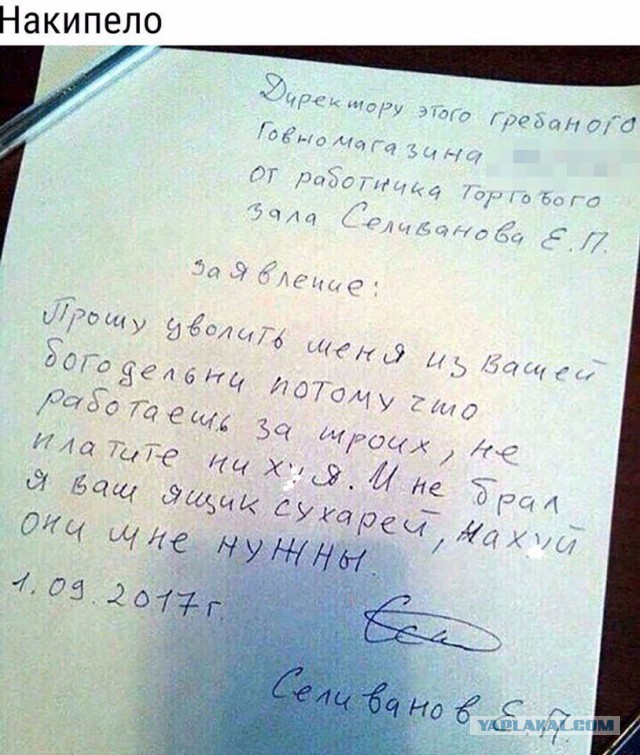 Накипело
Директору этого гребаного
говномагазина
от работника торгового
зала Селиванова Е.П.
заявление:
Прошу уволить меня из вашей
богодельни потому что
работаешь за троих, не
платите ни хуя. И не брал
я ваш ящик сухарей, нахуй
они мне нужны.
1.09.2017г.
Селиванов Е.П.
YAPLAKAL.COM